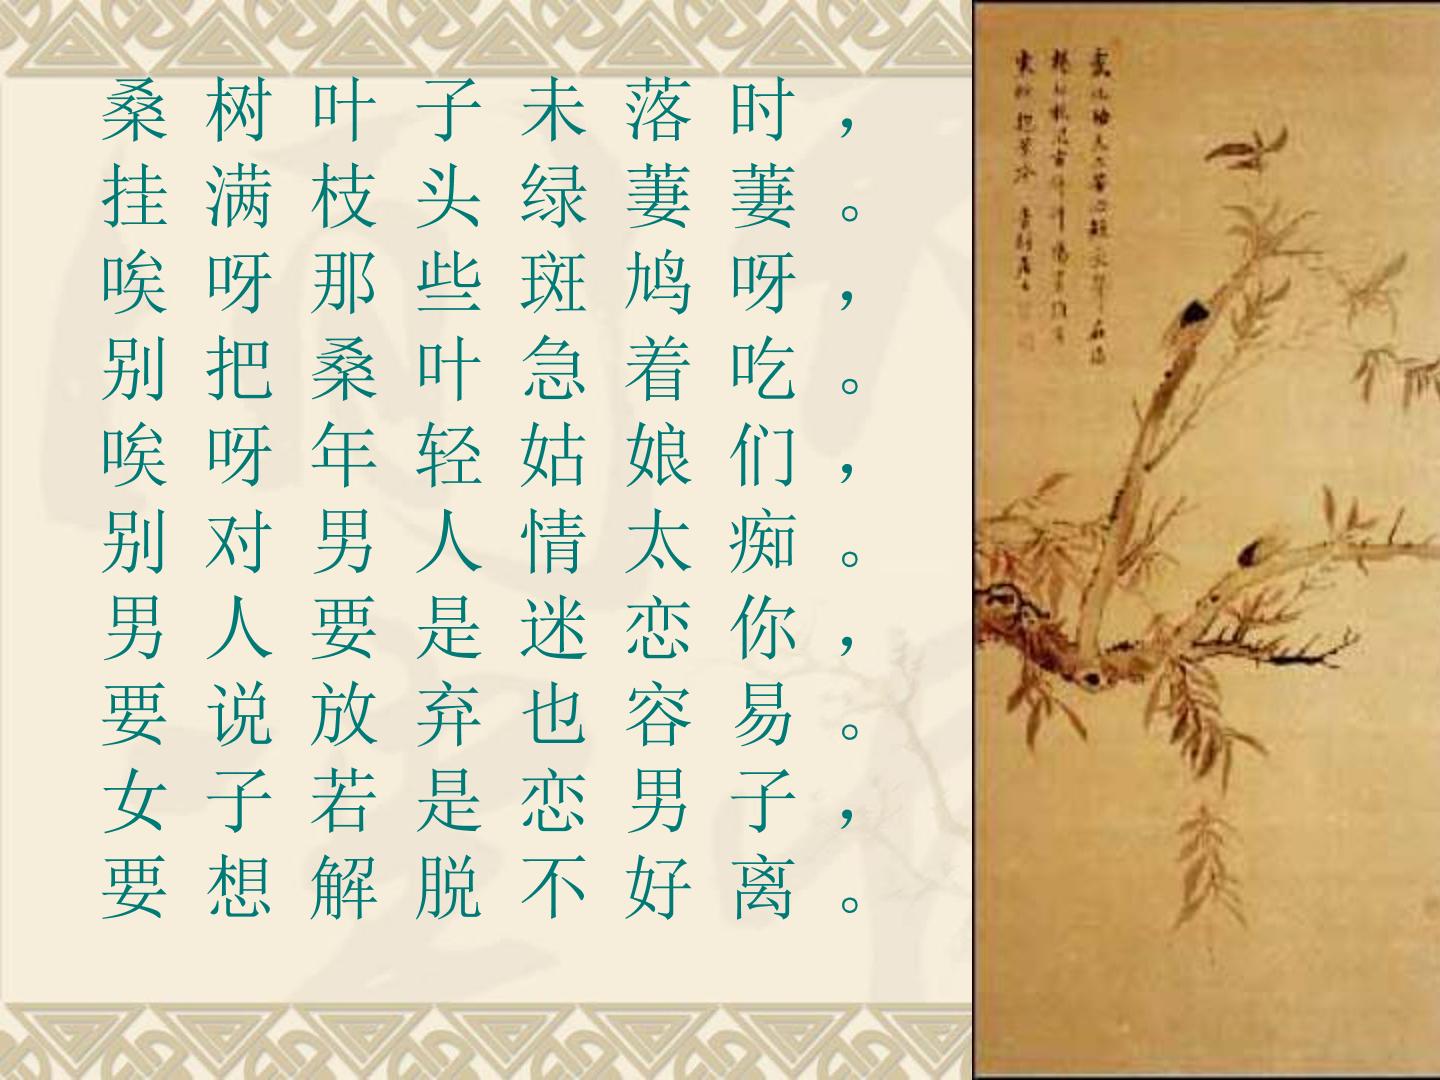 桑树叶子未落时，
挂满枝头绿萋萋。
唉呀那些斑鸠呀，
别把桑叶急着吃。
唉呀年轻姑娘们，
别对男人情太痴。
男人要是迷恋你，
要说放弃也容易。
女子若是恋男子，
要想解脱不好离。